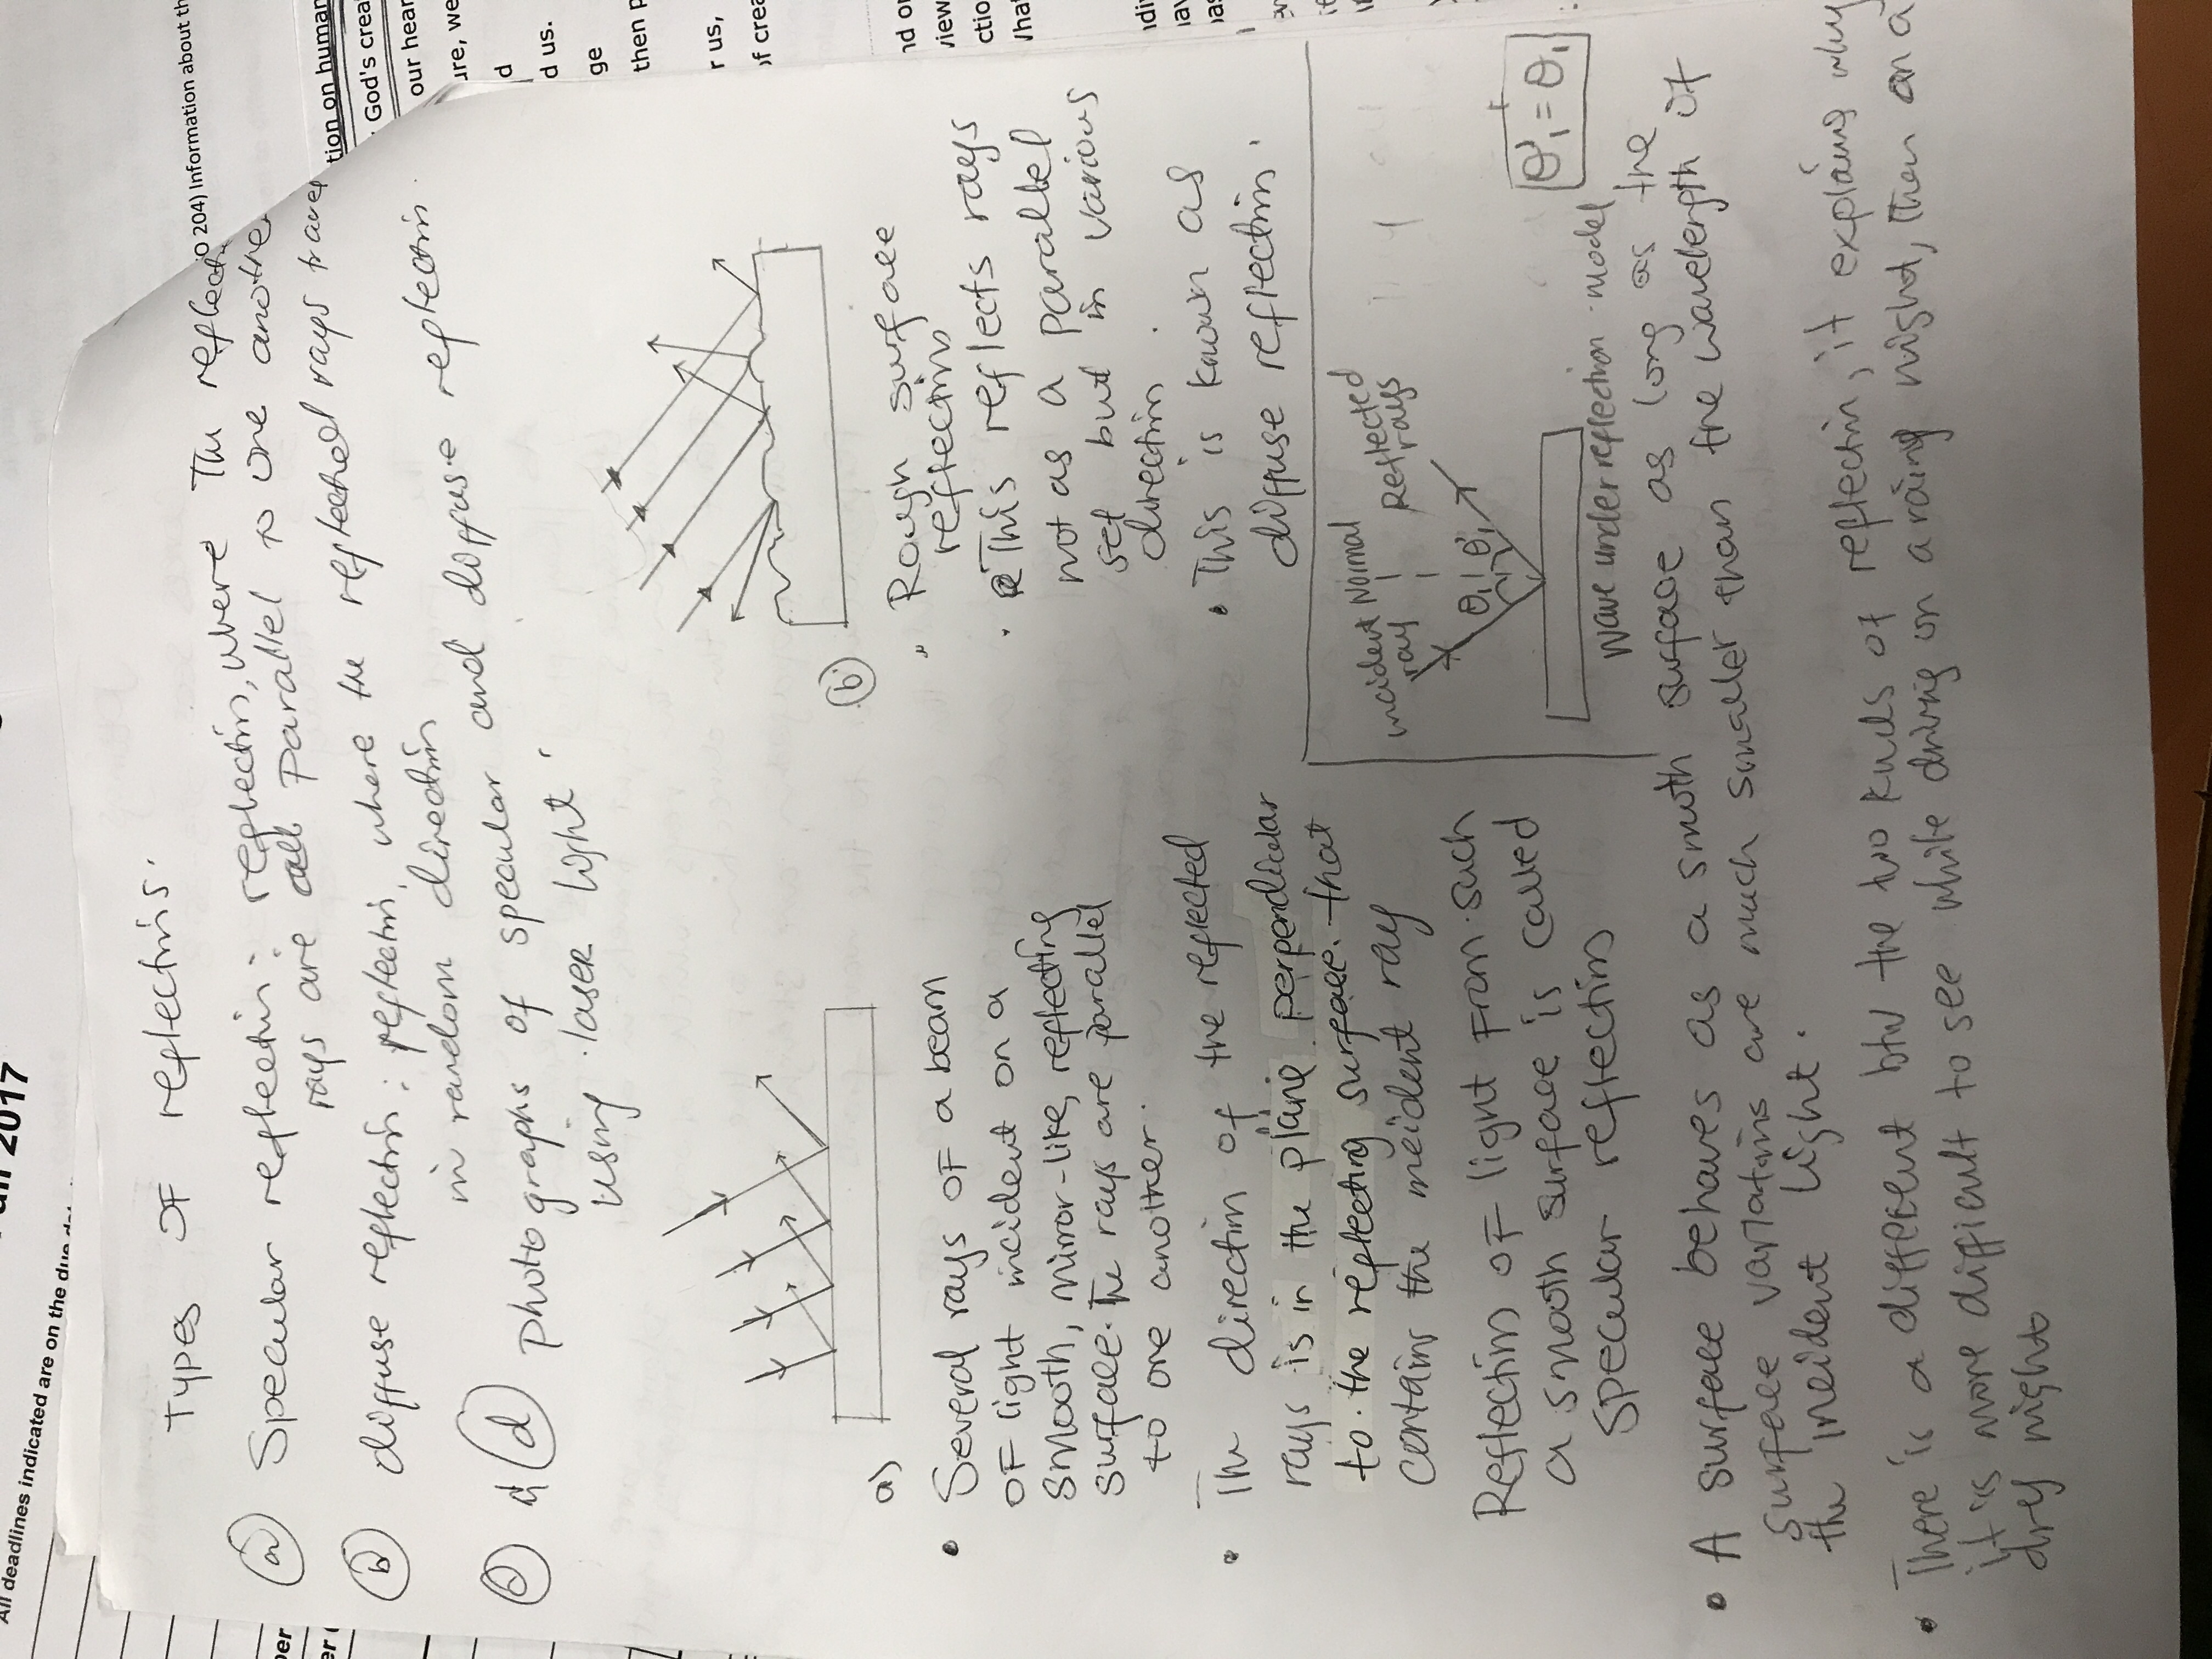 Types of reflections.
(a) Specular reflection: reflection, where The reflect
rays are all parallel to one another
(b) diffuse reflection: reflection, where the reflected rays travel
in random direction
(c) & (d) photographs of specular and diffuse reflection
using laser light.
a)
• Several rays of a beam
of light incident on a
smooth, mirror-like, reflecting
surface. The rays are parallel
to one another.
• The direction of the reflected
rays is in the plane perpendicular
to the reflecting surface that
contains the incident ray
Reflection of light from such
a smooth surface is called
specular reflection
(b)
• Rough surface
reflections
• This reflects rays
not as a parallel
set but in various
direction.
• This is known as
diffuse reflection.
incident Normal Reflected
ray rays
θ1 θ'1
θ'1 = θ1
Wave under reflection model
• A surface behaves as a smoth surface as long as the
surface variations are much smaller than the wavelength of
the incident light.
• There is a different btw the two kinds of reflection, it explains why
it is more difficult to see while driving on a raing night, then on a
dry night
All deadlines indicated are on the due
2017
O 204) Information about th
tion on human
God's crea
our hear
ure, we
d
d us.
ge
then p
r us,
of crea
nd o
view
ctio
What